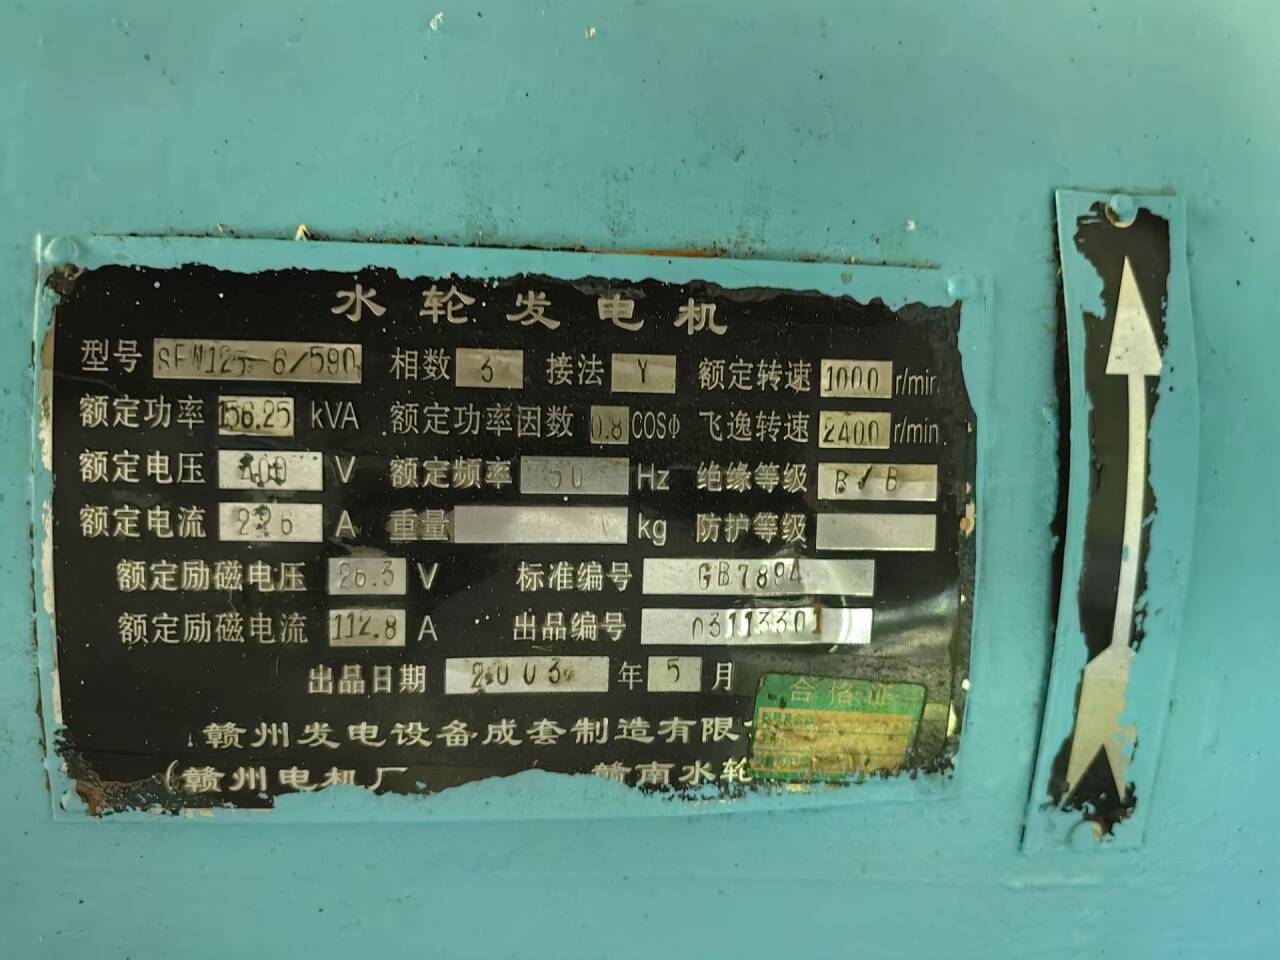 水轮发电机
型号 SFW125-6/590 相数 3 接法 Y 额定转速 1000 r/min
额定功率 156.25 kVA 额定功率因数 0.8 COSφ 飞逸转速 2400 r/min
额定电压 400 V 额定频率 50 Hz 绝缘等级 B/B
额定电流 226 A 重量 kg 防护等级
额定励磁电压 26.3 V 标准编号 GB7894
额定励磁电流 112.8 A 出品编号 03113301
出品日期 2003 年 5 月
合格证
赣州发电设备成套制造有限
(赣州电机厂 赣南水轮